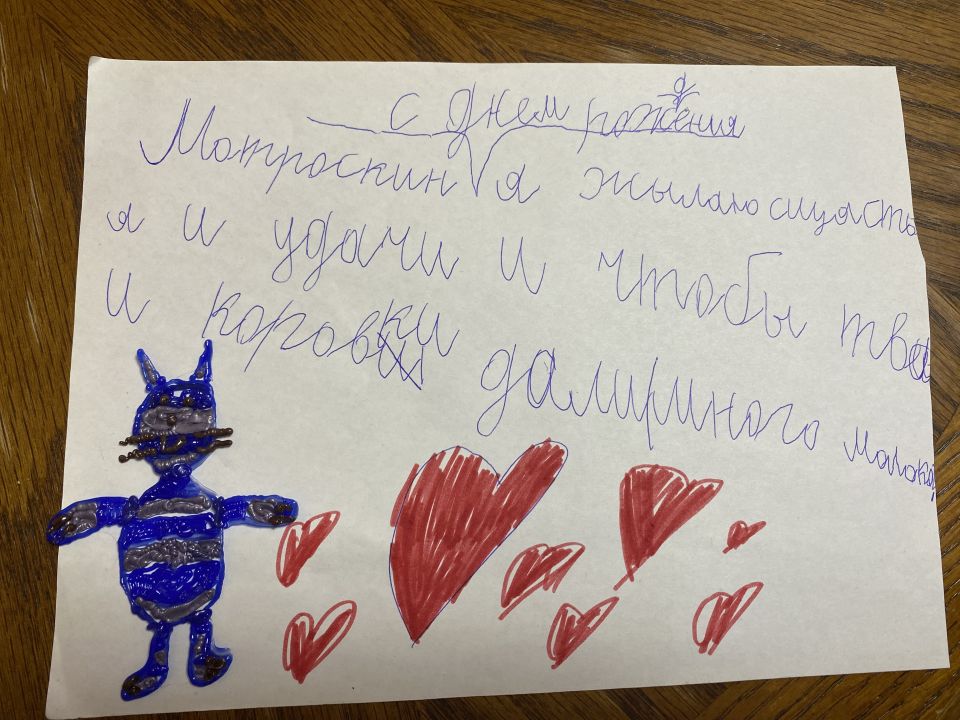 с днем рождения
Матроскин я жылаю сщасть
я и удачи и чтобы твои
и коровки дали много молока